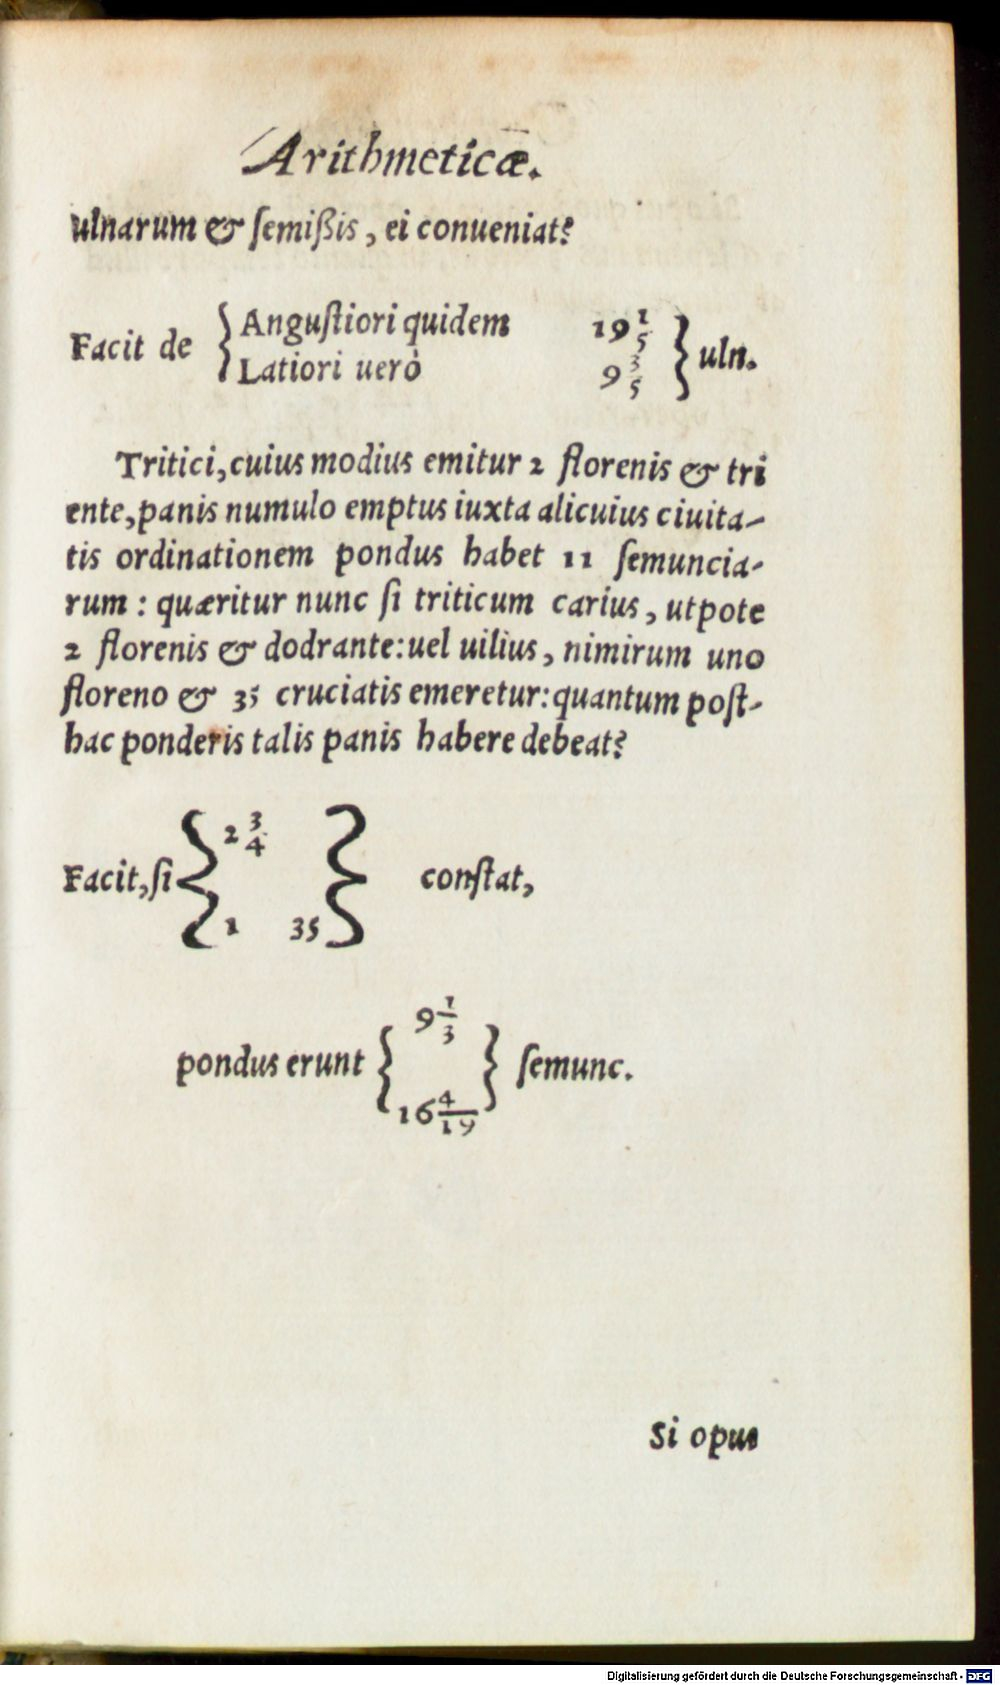 Arithmeticæ.
ulnarum & ſemißis, ei conueniat?
Facit de { Anguſtiori quidem 19 1/5 } uln.
Latiori uerò 9 3/5
Tritici, cuius modius emitur 2 florenis & tri
ente, panis numulo emptus iuxta alicuius ciuita-
tis ordinationem pondus habet 11 ſemuncia-
rum : quæritur nunc ſi triticum carius, utpote
2 florenis & dodrante: uel uilius, nimirum uno
floreno & 35 cruciatis emeretur: quantum poſt-
hac ponderis talis panis habere debeat?
2 3/4
Facit, ſi { } conſtat,
1 35
9 1/3
pondus erunt { } ſemunc.
16 4/19
Si opus
Digitalisierung gefördert durch die Deutsche Forschungsgemeinschaft - DFG